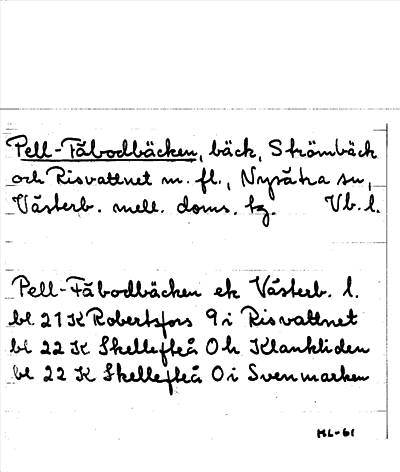 Pell-Fäbodbäcken, bäck, Strömbäck
och Risvattnet m. fl., Nysätra sn,
Västerb. mell. doms. tg. Vb. l.
Pell-Fäbodbäcken ek Västerb. l.
bl 21 K Robertsfors 9 i Risvattnet
bl 22 K Skellefteå 0 h Klankliden
bl 22 K Skellefteå 0 i Svenmarken
ML-61